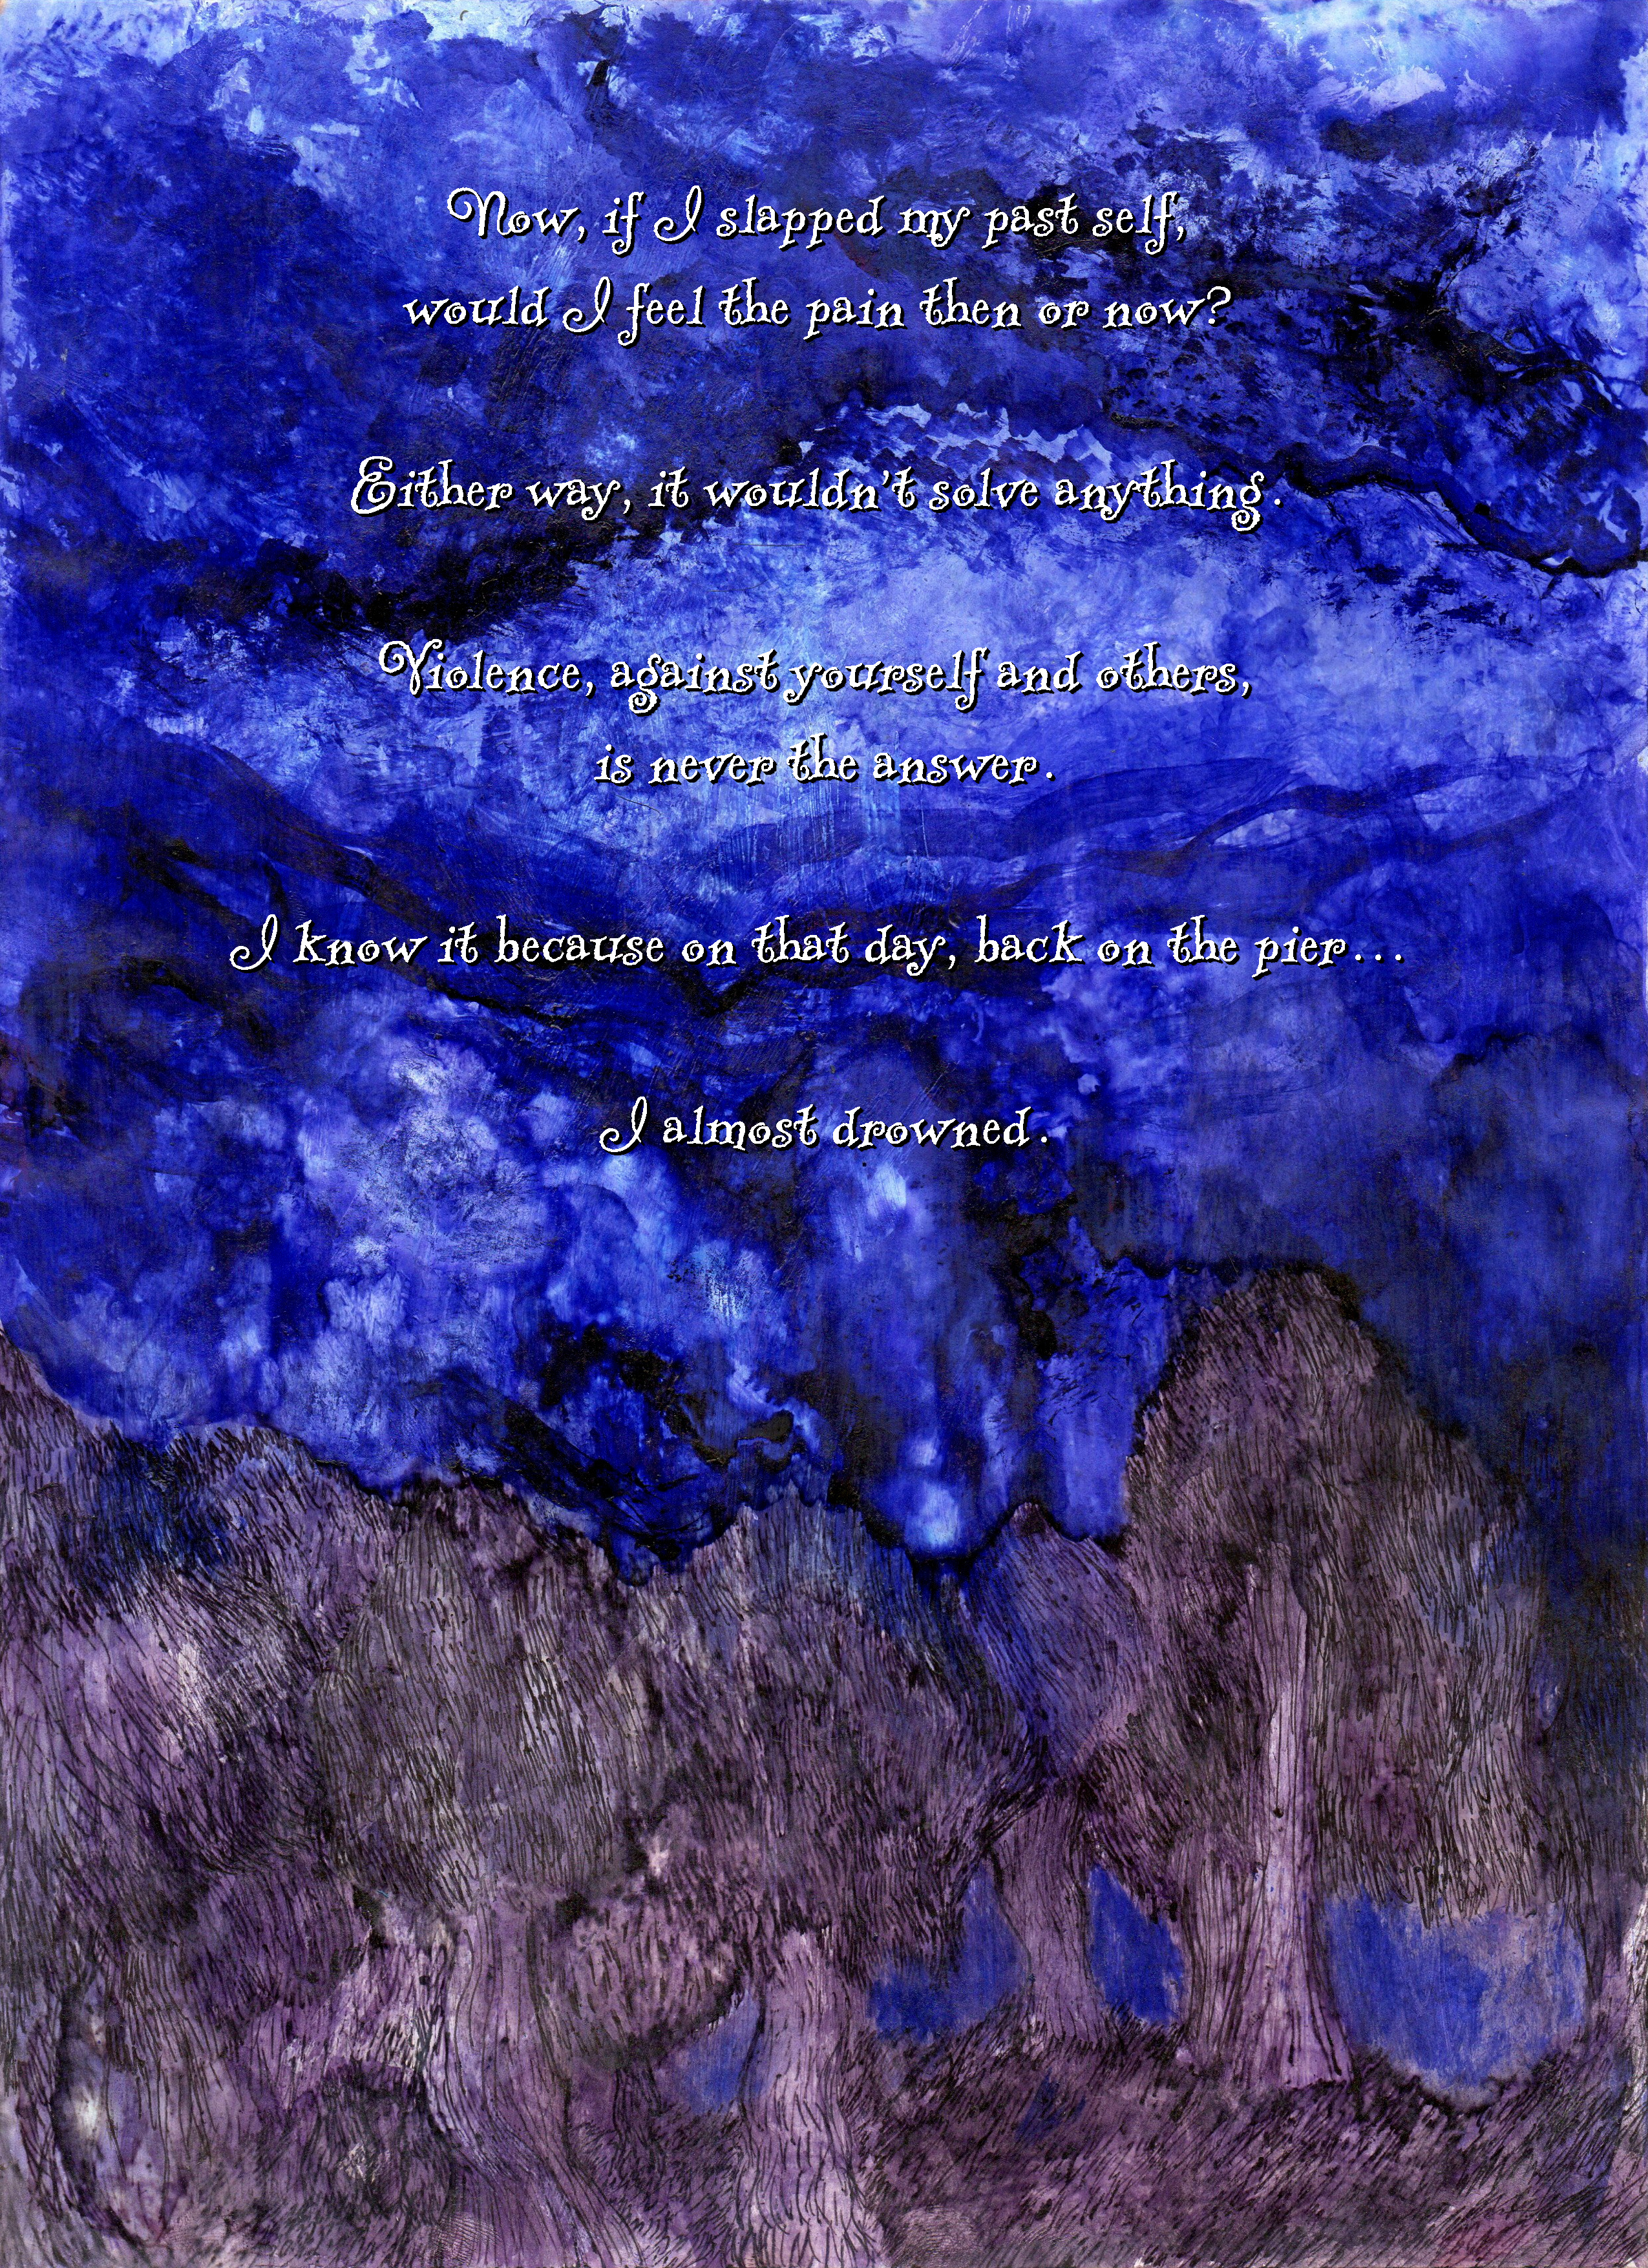 Now, if I slapped my past self,
would I feel the pain then or now?
Either way, it wouldn't solve anything.
Violence, against yourself and others,
is never the answer.
I know it because on that day, back on the pier...
I almost drowned.